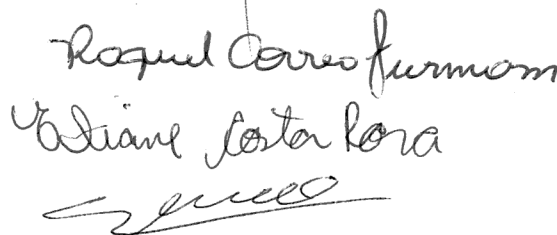 Raquel Correo Furmam
Tatiane Costa Rosa